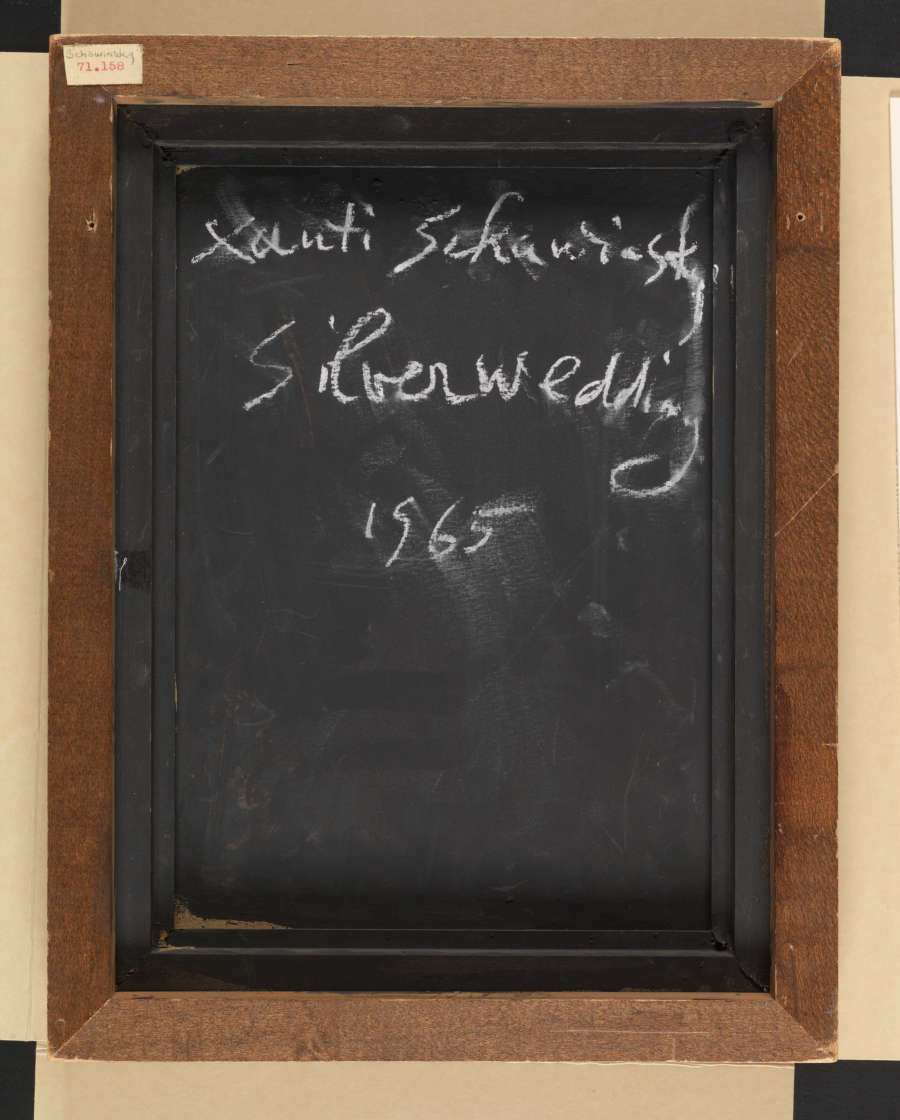 Schawinsky
71.158
Xanti Schawinsky
Silverwedding
1965